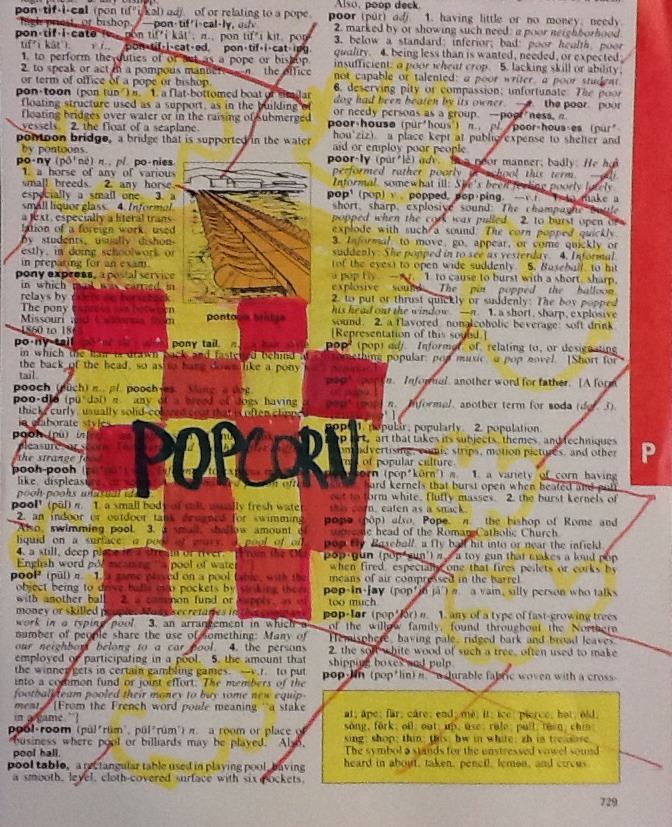 pon·tif·i·cal (pon tif′i kəl) adj. of or relating to a pope,
high priest, or bishop. —pon·tif·i·cal·ly, adv.
pon·tif·i·cate (pon tif′i kāt′; n., pon tif′i kit, pon
tif′i kāt′). v.i., pon·tif·i·cat·ed, pon·tif·i·cat·ing.
1. to perform the duties of or act as a pope or bishop.
2. to speak or act in a pompous manner. —n. the office
or term of office of a pope or bishop.
pon·toon (pon tün′) n. 1. a flat-bottomed boat or similar
floating structure used as a support, as in the building of
floating bridges over water or in the raising of submerged
vessels. 2. the float of a seaplane.
pontoon bridge, a bridge that is supported in the water
by pontoons.
po·ny (pō′nē) n., pl. po·nies.
1. a horse of any of various
small breeds. 2. any horse,
especially a small one. 3. a
small liquor glass. 4. Informal.
a text, especially a literal trans-
lation of a foreign work, used
by students, usually dishon-
estly, in doing schoolwork or
in preparing for an exam.
pontoon bridge
pony express, a postal service
in which was carried in
relays by
The pony between
Missouri and California from
1860 to 186
po·ny·tail pony tail. n.
in which the hair is drawn back and fastened behind at
the back of the head, so as to hang down like a pony's
tail.
pooch (püch) n., pl. pooch·es. Slang. a dog.
poo·dle (pü′dəl) n. any of a breed of dogs having
thick, curly, usually solid-colored coat that is often clipped
in elaborate styles.
pooh (pü) in
pleasure or scorn
the strange food.
pooh-pooh
like, displeas
pooh-poohs unusual
pool¹ (pül) n. 1. a small body of still, usually fresh water.
2. an indoor or outdoor tank designed for swimming.
Also, swimming pool. 3. a small, shallow amount of
liquid on a surface: a pool of gravy, a pool of
4. a still, deep place in a stream or river. [From the Old
English word pōl meaning "a pool of water."]
pool² (pül) n. 1. a game played on a pool table, with the
object being to drive balls into pockets by striking them
with another ball. 2. a common fund or supply, as of
money or skilled
work in a typing pool. 3. an arrangement in which a
number of people share the use of something: Many of
our neighbors belong to a car pool. 4. the persons
employed or participating in a pool. 5. the amount that
the winner gets in certain gambling games. —v.t. to put
into a common fund or joint effort: The members of the
football team pooled their money to buy some new equip-
ment. [From the French word poule meaning "a stake
in a game."]
pool·room (pül′rüm′, pül′rum′) n. a room or place of
business where pool or billiards may be played. Also,
pool hall.
pool table, a rectangular table used in playing pool, having
a smooth, level, cloth-covered surface with six pockets,
POPCORN
Also, poop deck.
poor (pur) adj. 1. having little or no money; needy.
2. marked by or showing such need: a poor neighborhood.
3. below a standard; inferior; bad: poor health, poor
quality. 4. being less than is wanted, needed, or expected;
insufficient: a poor wheat crop. 5. lacking skill or ability;
not capable or talented: a poor writer, a poor student.
6. deserving pity or compassion; unfortunate: The poor
dog had been beaten by its owner. — the poor. poor
or needy persons as a group. —poor′ness, n.
poor·house (pur′hous′) n., pl. poor·hous·es (pur′-
hou′ziz). a place kept at public expense to shelter and
aid or employ poor people.
poor·ly (pur′lē) adv. in a poor manner; badly: He has
performed rather poorly in school this term. —adj.
Informal. somewhat ill: She's been feeling poorly lately.
pop¹ (pop) v., popped, pop·ping. —v.i. 1. to make a
short, sharp, explosive sound: The champagne bottle
popped when the cork was pulled. 2. to burst open or
explode with such a sound: The corn popped quickly.
3. Informal. to move, go, appear, or come quickly or
suddenly: She popped in to see us yesterday. 4. Informal.
(of the eyes) to open wide suddenly. 5. Baseball. to hit
a pop fly. —v.t. 1. to cause to burst with a short, sharp,
explosive sound: The pin popped the balloon.
2. to put or thrust quickly or suddenly: The boy popped
his head out the window. —n. 1. a short, sharp, explosive
sound. 2. a flavored, nonalcoholic beverage; soft drink.
[Representation of this sound.]
pop² (pop) adj. Informal. of, relating to, or designating
something popular: pop music, a pop novel. [Short for
pop³ n. Informal. another word for father. [A form
n. Informal. another term for soda (def. 3).
pop. 1. popular; popularly. 2. population.
pop art, art that takes its subjects, themes, and techniques
from advertising, comic strips, motion pictures, and other
of popular culture.
corn (pop′kôrn′) n. 1. a variety of corn having
hard kernels that burst open when heated and puff
out to form white, fluffy masses. 2. the burst kernels of
this corn, eaten as a snack.
pope (pōp) also, Pope. n. the bishop of Rome and
supreme head of the Roman Catholic Church.
pop fly Baseball. a fly ball hit into or near the infield.
pop·gun (pop′gun′) n. a toy gun that makes a loud pop
when fired, especially one that fires pellets or corks by
means of air compressed in the barrel.
pop·in·jay (pop′in jā′) n. a vain, silly person who talks
too much.
pop·lar (pop′lər) n. 1. any of a type of fast-growing trees
of the willow family, found throughout the Northern
Hemisphere, having pale, ridged bark and broad leaves.
2. the soft white wood of such a tree, often used to make
shipping boxes and pulp.
pop·lin (pop′lin) n. a durable fabric woven with a cross-
P
at; āpe; fär; câre; end; mē; it; īce; pierce; hot; ōld;
sông; fôrk; oil; out; up; ūse; rüle; pull; tûrn; chin;
sing; shop; thin; this; hw in white; zh in treasure.
The symbol ə stands for the unstressed vowel sound
heard in about, taken, pencil, lemon, and circus.
729